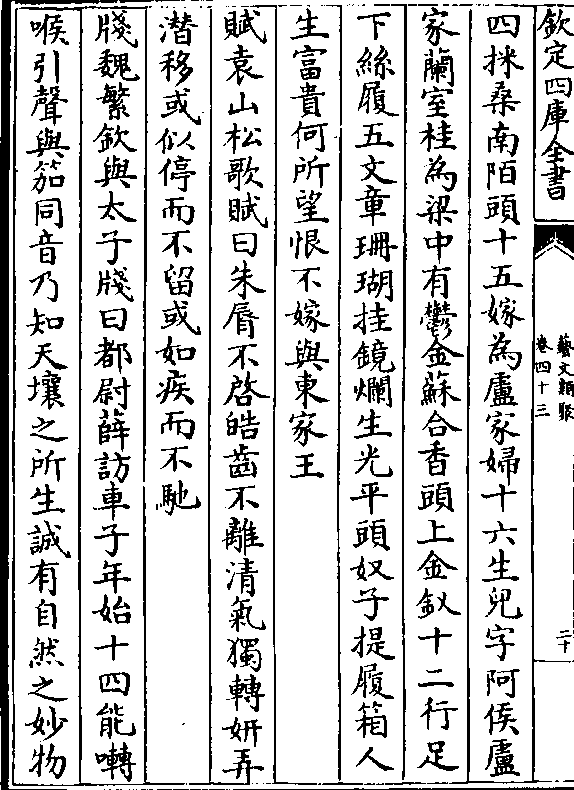 欽定四庫全書
藝文類聚
卷四十三
二十
四採桑南陌頭十五嫁為盧家婦十六生兒字阿侯盧
家蘭室桂為梁中有鬱金蘇合香頭上金釵十二行足
下絲履五文章珊瑚挂鏡爛生光平頭奴子提履箱人
生富貴何所望恨不嫁與東家王
賦袁山松歌賦曰朱脣不啓皓齒不離清氣獨轉妍弄
潛移或似停而不留或如疾而不馳
牋魏繁欽與太子牋曰都尉薛訪車子年始十四能囀
喉引聲與笳同音乃知天壤之所生誠有自然之妙物